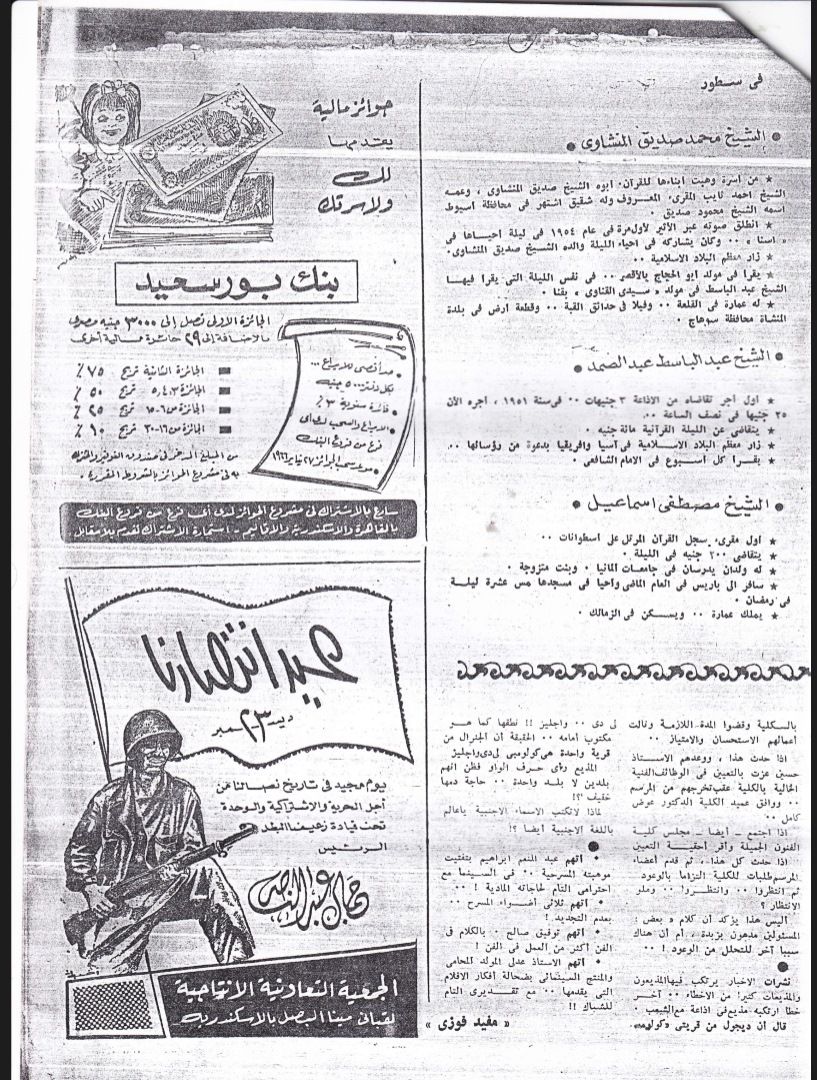 فى سطور
● الشيخ محمد صديق المنشاوى ●
★ من أسرة وهبت أبناءها للقرآن، أبوه الشيخ صديق المنشاوى ، وعمه
الشيخ احمد تايب المقرىء المعروف وله شقيق اشتهر فى محافظة أسيوط
اسمه الشيخ محمود صديق .
★ انطلق صوته عبر الأثير لأول مرة فى عام ١٩٥٤ فى ليلة أحياها فى
« اسنا » ٠٠ وكان يشاركه فى احياء الليلة والده الشيخ صديق المنشاوى.
★ زار معظم البلاد الاسلامية ٠٠
★ يقرأ فى مولد ابو الحجاج بالأقصر ٠٠ فى نفس الليلة التى يقرأ فيها
الشيخ عبد الباسط فى مولد « سيدى القناوى » بقنا .
★ له عمارة فى القلعة ٠٠ وفيلا فى حدائق القبة ٠٠ وقطعة أرض فى بلدة
المنشاة محافظة سوهاج .
● الشيخ عبد الباسط عبد الصمد ●
★ أول أجر تقاضاه من الاذاعة ٣ جنيهات ٠٠ فى سنة ١٩٥١ ، أجره الآن
٢٥ جنيها فى نصف الساعة ٠٠
★ يتقاضى عن الليلة القرآنية مائة جنيه .
★ زار معظم البلاد الاسلامية فى آسيا وافريقيا بدعوة من رؤسائها ٠٠
★ يقرأ كل أسبوع فى الامام الشافعى .
● الشيخ مصطفى اسماعيل ●
★ أول مقرىء سجل القرآن المرتل على اسطوانات ٠٠
★ يتقاضى ٢٠٠ جنيه فى الليلة .
★ له ولدان يدرسان فى جامعات ألمانيا . وبنت متزوجة .
★ سافر الى باريس فى العام الماضى وأحيا فى مسجدها خمس عشرة ليلة
فى رمضان .
★ يملك عمارة ٠٠ ويسكن فى الزمالك .
بالكلية وقضوا المدة اللازمة ونالت
أعمالهم الاستحسان والامتياز ٠٠
اذا حدث هذا ، ووعدهم الاستاذ
حسين عزت بالتعيين فى الوظائف الفنية
الخالية بالكلية عقب تخرجهم من المرسم
٠٠ ووافق عميد الكلية الدكتور عوض
كامل ٠٠
اذا اجتمع ــ أيضا ــ مجلس كلية
الفنون الجميلة وأقر أحقية التعيين
اذا حدث كل هذا ، ثم قدم أعضاء
المرسم طلبات للكلية التزاما بالوعود
ثم انتظروا ٠٠ وانتظروا ٠٠
الانتظار ؟
أليس هذا يؤكد أن كلام « بعض »
المسئولين مدهون بزبدة ، أم أن هناك
سببا آخر للتحلل من الوعود ! ٠٠
●
نشرات الاخبار يرتكب فيها المذيعون
والمذيعات كثيرا من الأخطاء ٠٠ آخر
خطأ ارتكبه مذيع فى اذاعة مع الشعب .
قال أن ديجول من قريتى
لى دى ٠٠ واجليز !! نطقها كما هو
مكتوب أمامه ٠٠ الحقيقة أن الجنرال من
قرية واحدة هى كولومبى لى دى واجليز
المذيع رأى حرف الواو فظن أنهم
بلدين لا بلد واحدة ٠٠ حاجة دمها
خفيف !؟
لماذا لا تكتب الاسماء الأجنبية ياعالم
باللغة الأجنبية أيضا ؟!
●
● أتهم عبد المنعم ابراهيم بتفتيت
موهبته المسرحية ٠٠ فى السينما مع
احترامى التام لحاجاته المادية ! ٠٠
● أتهم ثلاثى أضواء المسرح ٠٠
بعدم التجديد !
● أتهم توفيق صالح ٠٠ بالكلام فى
الفن أكثر من العمل فى الفن !
● أتهم الاستاذ عدلى المولد المحامى
والمنتج السينمائى بضحالة أفكار الافلام
التى يقدمها ٠٠ مع تقديرى التام
للشباك !!
« مفيد فوزى »
جوائز مالية
يعتد بها
لك
ولأسرتك
بنك بورسعيد
الجائزة الأولى تصل إلى ٣٠٠٠ جنيه مصرى
بالاضافة إلى ٢٩ جائزة مالية أخرى
الجائزة الثانية تربح ٧٥ ٪
الجائزة ٣،٤،٥ تربح ٥٠ ٪
الجائزة من ٦-١٥ تربح ٢٥ ٪
الجائزة من ١٦-٣٠ تربح ١٠ ٪
من المبلغ المدخر فى صندوق التوفير والمشترك
به فى مشروع الجوائز بالشروط المقررة .
● حد أقصى للايداع ...
لكل دفتر ٥٠٠ جنيه
● فائدة سنوية ٣ ٪
● الايداع والسحب لدى أى
فرع من فروع البنك
● موعد سحب الجوائز ٢٧ يناير ١٩٦٦
سارع بالاشتراك فى مشروع الجوائز لدى أى فرع من فروع البنك
بالقاهرة والاسكندرية والأقاليم - استمارة الاشتراك تقدم بلا مقابل
عيد انتصارنا
٢٣ ديسمبر
يوم مجيد فى تاريخ نضالنا من
أجل الحرية والاشتراكية والوحدة
تحت قيادة زعيمنا البطل
الرئيس
جمال عبد الناصر
الجمعية التعاونية الانتاجية
لقبانى مينا البصل بالاسكندرية